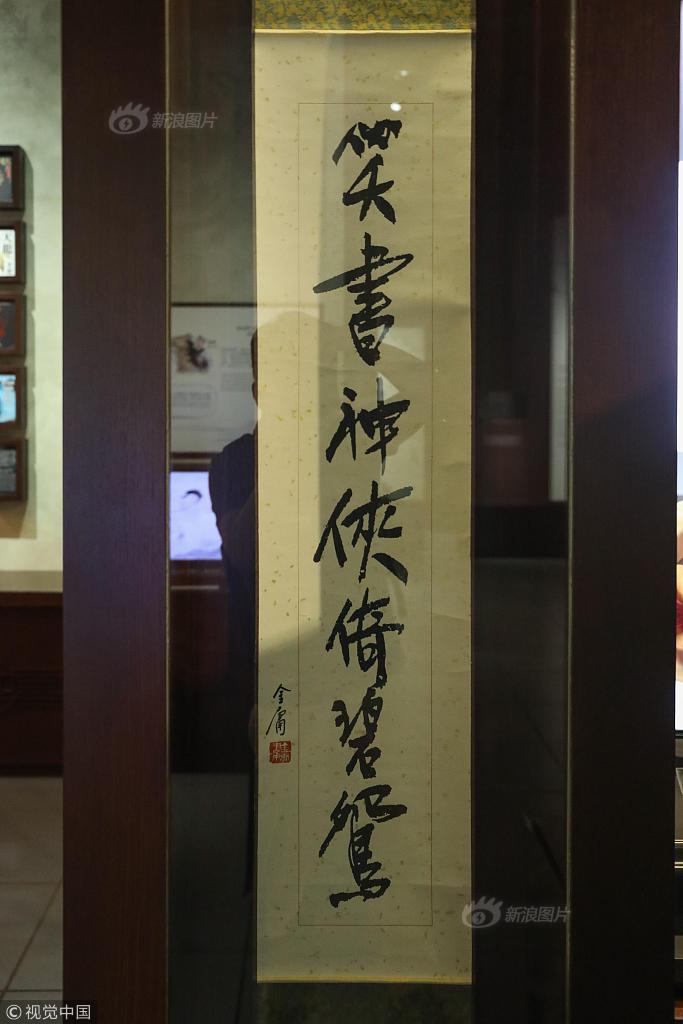 新浪图片
笑書神俠倚碧鴛
金庸
新浪图片
© 视觉中国